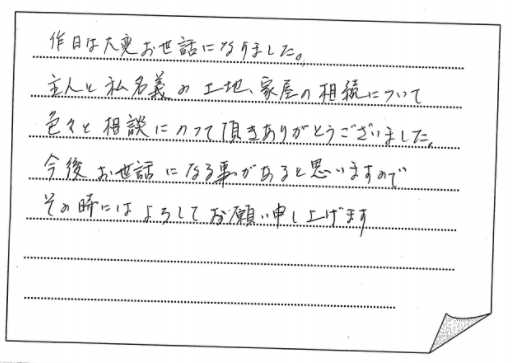 昨日は大変お世話になりました。
主人と私名義の土地、家屋の相続について
色々と相談にのって頂きありがとうございました。
今後お世話になる事があると思いますので
その時にはよろしくお願い申し上げます